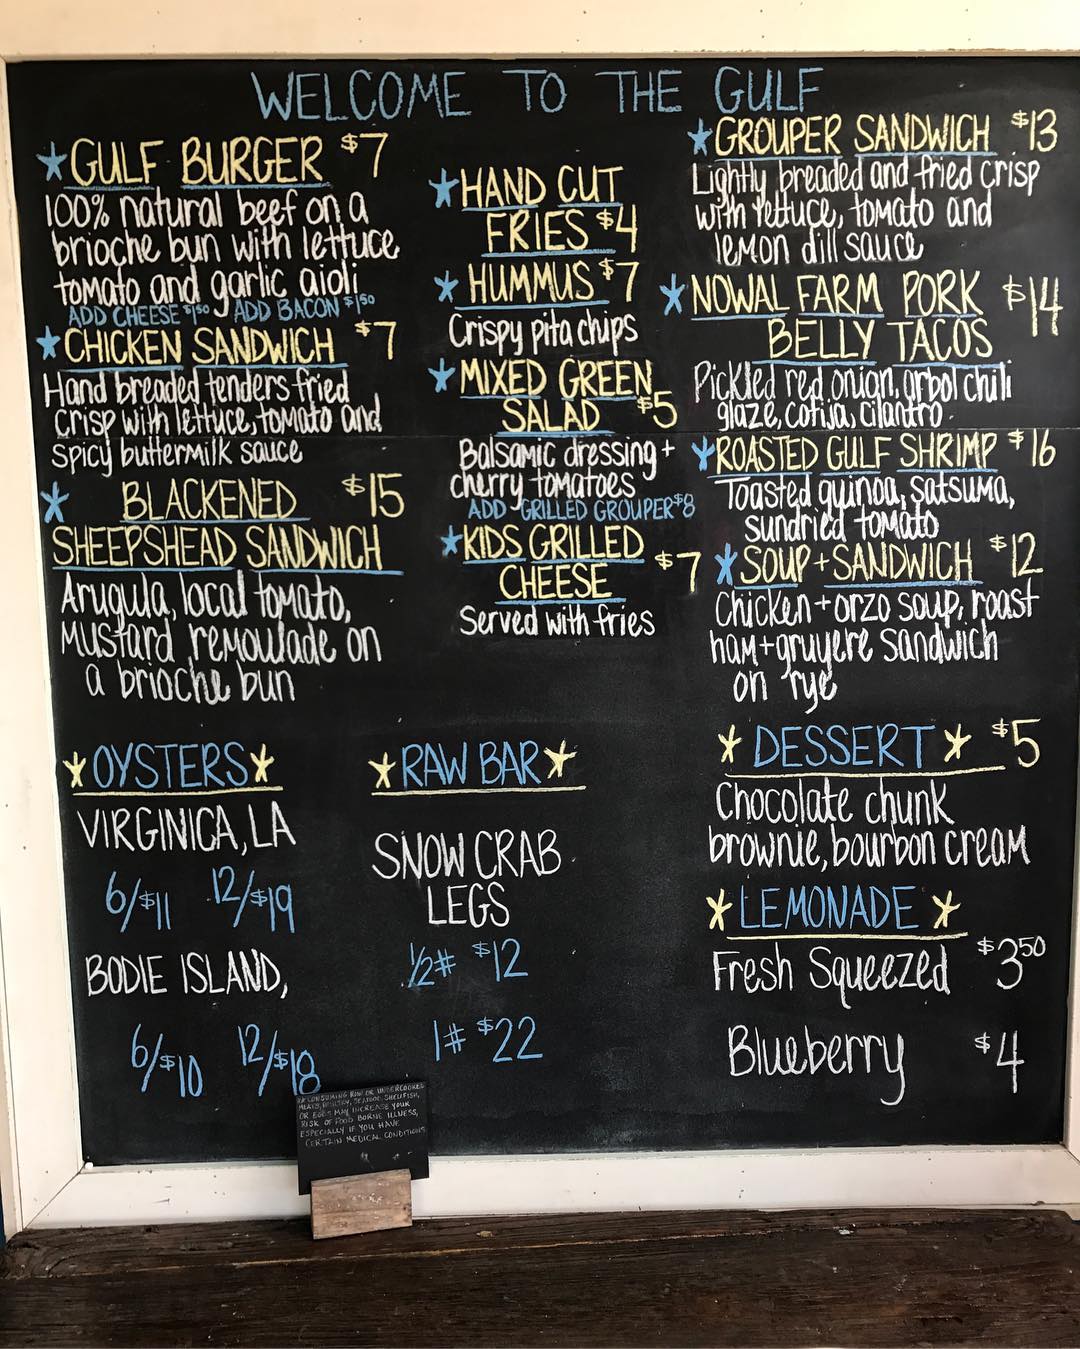 WELCOME TO THE GULF
GULF BURGER $7
100% natural beef on a
brioche bun with lettuce
tomato and garlic aioli
ADD CHEESE $150 ADD BACON $150
CHICKEN SANDWICH $7
Hand breaded tenders fried
crisp with lettuce, tomato and
spicy buttermilk sauce
BLACKENED $15
SHEEPSHEAD SANDWICH
Arugula, local tomato,
mustard remoulade on
a brioche bun
HAND CUT
FRIES $4
HUMMUS $7
Crispy pita chips
MIXED GREEN
SALAD $5
Balsamic dressing +
cherry tomatoes
ADD GRILLED GROUPER $8
KIDS GRILLED
CHEESE $7
Served with fries
GROUPER SANDWICH $13
Lightly breaded and fried crisp
with lettuce, tomato and
lemon dill sauce
NOWAL FARM PORK $14
BELLY TACOS
Pickled red onion, arbol chili
glaze, cotija, cilantro
ROASTED GULF SHRIMP $16
Toasted quinoa, satsuma,
sundried tomato
SOUP + SANDWICH $12
Chicken + orzo soup, roast
ham + gruyere sandwich
on rye
OYSTERS
VIRGINICA, LA
6/$11 12/$19
BODIE ISLAND,
6/$10 12/$18
RAW BAR
SNOW CRAB
LEGS
1/2# $12
1# $22
DESSERT $5
Chocolate chunk
brownie, bourbon cream
LEMONADE
Fresh Squeezed $350
Blueberry $4
CONSUMING RAW OR UNDERCOOKED
MEATS, POULTRY, SEAFOOD, SHELLFISH,
OR EGGS MAY INCREASE YOUR
RISK OF FOOD BORNE ILLNESS,
ESPECIALLY IF YOU HAVE
CERTAIN MEDICAL CONDITIONS